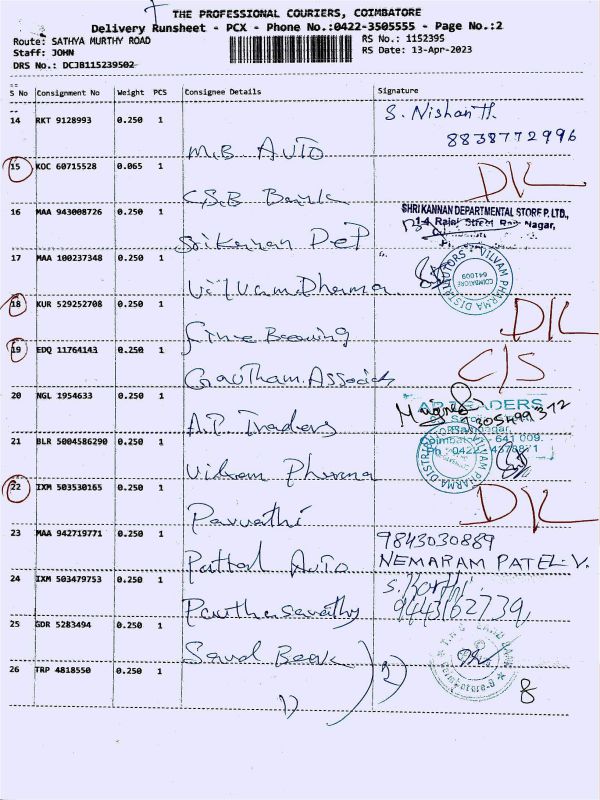 THE PROFESSIONAL COURIERS, COIMBATORE
Delivery Runsheet - PCX - Phone No.:0422-3505555 - Page No.:2
Route: SATHYA MURTHY ROAD
RS No.: 1152395
Staff: JOHN
RS Date: 13-Apr-2023
DRS No.: DCJB115239502
S No Consignment No Weight PCS Consignee Details Signature
14 RKT 9128993 0.250 1 M.B AUTO S. Nishanth.
8838772996
15 KOC 60715528 0.065 1 C.S.B Bank D/L
16 MAA 943008726 0.250 1 Srikannan DeP
SHRI KANNAN DEPARTMENTAL STORE P. LTD.,
17 MAA 100237348 0.250 1 Vilvam Dharma
VILVAM PHARMA DISTRIBUTORS
COIMBATORE
641009
18 KUR 529252708 0.250 1 D/L
19 EDQ 11764143 0.250 1 Gautham Associ C/S
20 NGL 1954633 0.250 1 A.P Traders
21 BLR 5004586290 0.250 1 Vilvam Pharma
22 IXM 503530165 0.250 1 Parvathi D/L
23 MAA 942719771 0.250 1 Pattal Auto 9843030889
NEMARAM PATEL.V.
24 IXM 503479753 0.250 1 Parthasarathy
9443162739,
25 GDR 5283494 0.250 1
26 TRP 4818550 0.250 1
8